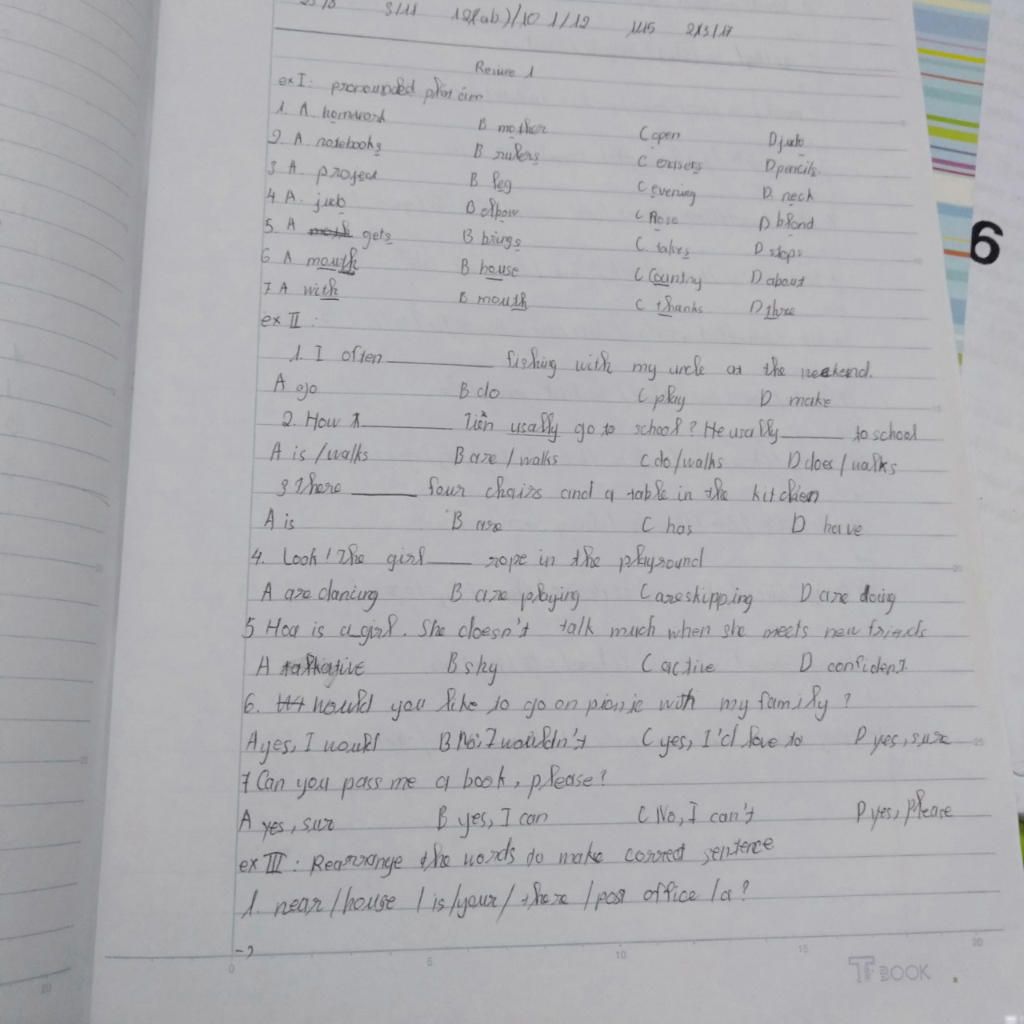 3/11 12(ab)/10 1/12 1115 213/17
Reviire 1
ex I: pronounded
1. A homword B mother C open D judo
2. A notebooks B rulers C erasers D pencils
3 A project B leg C evening D. neck
4 A. jud B elbow C Nose D blond
5 A gets B brings C. takes D stops
6 A mouth B house C Country D about
7 A with B mouth C thanks D three
ex II:
1. I often ______ fishing with my uncle at the weekend.
A go B do C play D make
2. How ______ Tiến usally go to school? He usally ______ to school
A is/walks B are/walks C do/walks D does/walks
3 there ______ four chairs and a table in the kitchien
A is B are C has D have
4. Look! the girl ____ rope in the playground
A are dancing B are playing C are skipping D are doing
5 Hoa is a girl. She doesn't talk much when she meets new friends
A talkative B shy C active D confident
6. would you like to go on picnic with my family?
A yes, I would B No, I wouldn't C yes, I'd love to D yes, sure
7 Can you pass me a book, please?
A yes, sur B yes, I can C No, I can't D yes, please
ex III: Rearrange the words to make correct sentence
1. near/house/is/your/there/post office/a?
->
0 5 10 15 20
TF BOOK
6